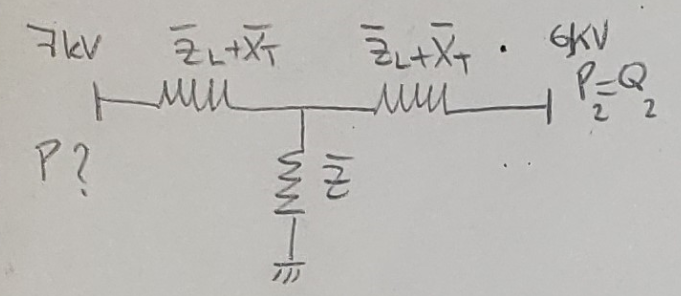 7kV Z̄L+X̄T Z̄L+X̄T · 6kV
P2=Q2
P? Z̄